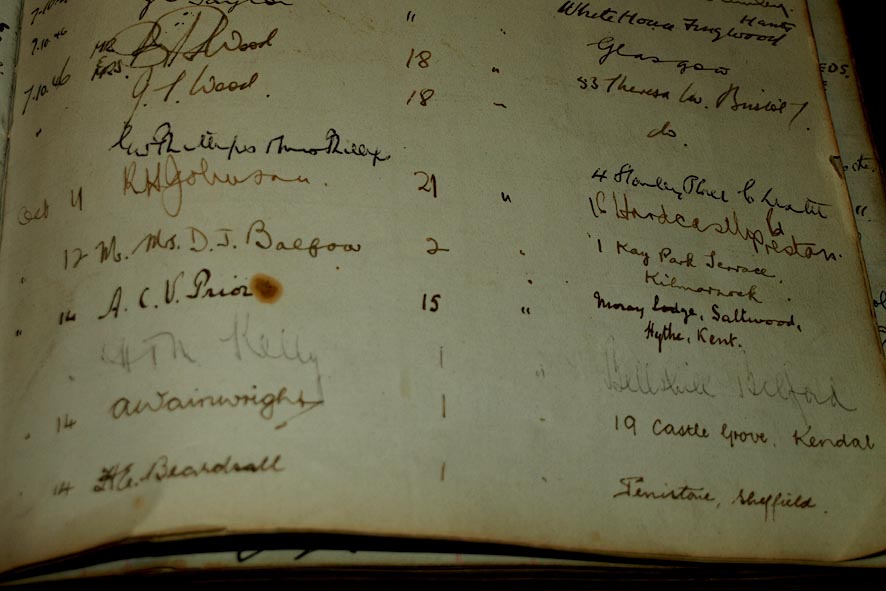 Hants
White House Fingwood
7.10.46 MR & MRS. Wood 18 " Glasgow
7.10.46 J. S. Wood. 18 " 83 Theresa Av. Bristol 7
" do.
Oct 11 R H Johnson. 21 " 4 Stanley Place
16 Hardcastle Rd Preston.
" 12 Mr. Mrs. D. J. Balfour 2 " 1 Kay Park Terrace,
Kilmarnock.
" 14 A. C. V. Prior 15 " Moray Lodge, Saltwood,
Hythe, Kent.
" Kelly 1 " Bellshill Belford
" 14 AWainwright 1 19 Castle Grove, Kendal
" 14 H.E. Beardsall 1 " Penistone, Sheffield.
EDS.